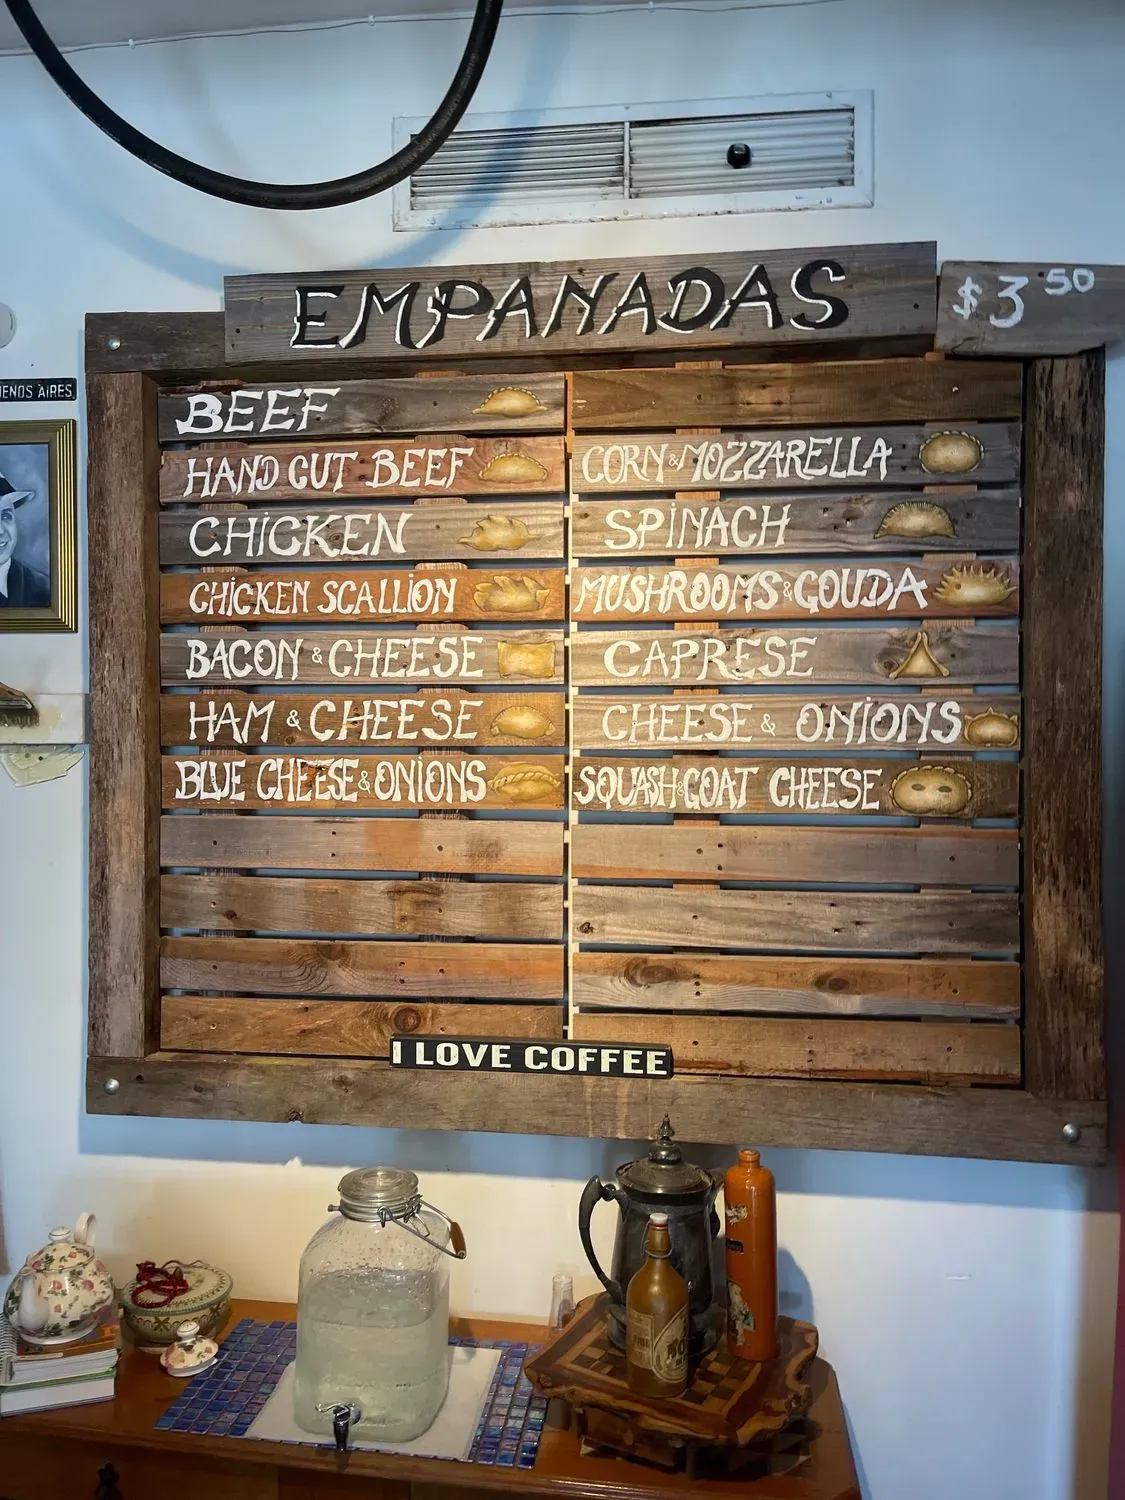 EMPANADAS
$3 50
BEEF
HAND CUT BEEF
CHICKEN
CHICKEN SCALLION
BACON & CHEESE
HAM & CHEESE
BLUE CHEESE & ONIONS
CORN & MOZZARELLA
SPINACH
MUSHROOMS & GOUDA
CAPRESE
CHEESE & ONIONS
SQUASH & GOAT CHEESE
I LOVE COFFEE
ENOS AIRES